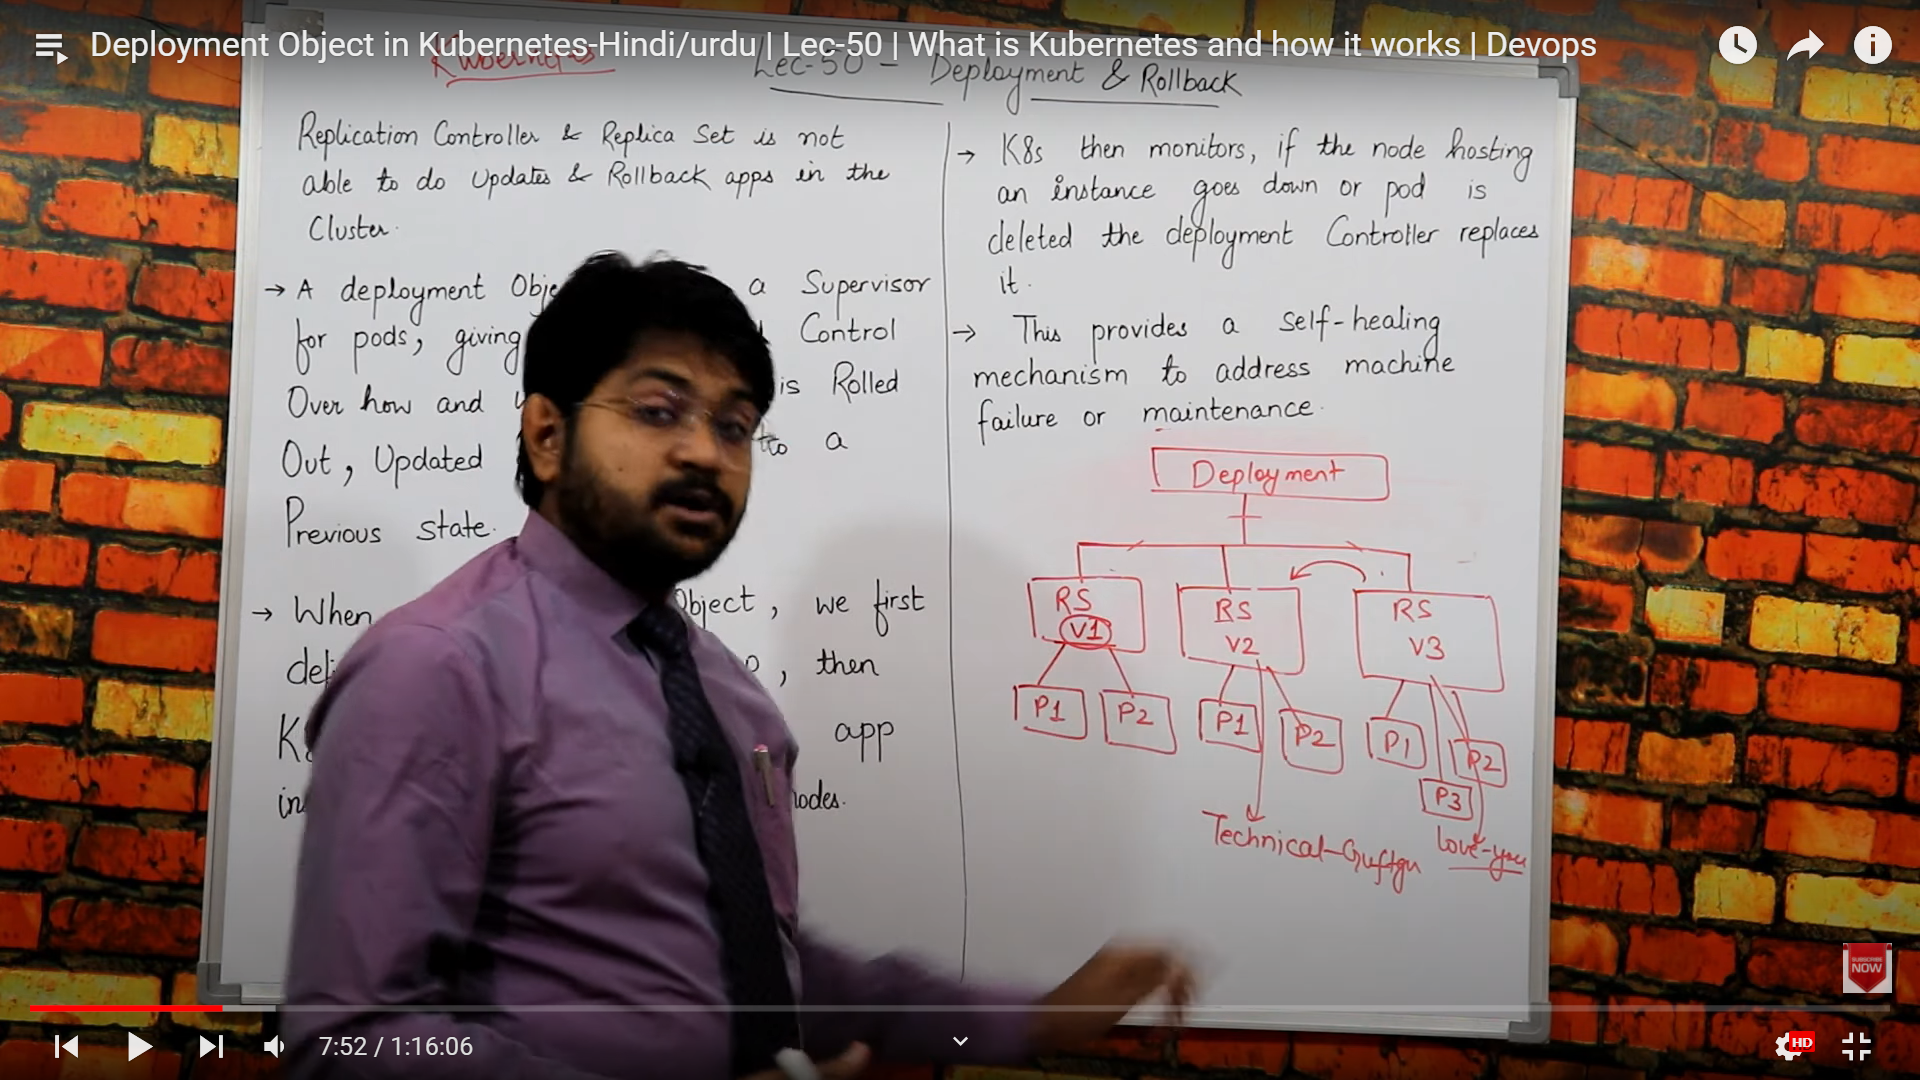 Deployment Object in Kubernetes-Hindi/urdu | Lec-50 | What is Kubernetes and how it works | Devops
Kubernetes
Lec-50 - Deployment & Rollback
Replication Controller & Replica Set is not
able to do Updates & Rollback apps in the
Cluster.
→ A deployment Obje a Supervisor
for pods, giving Control
Over how and is Rolled
Out, Updated to a
Previous state.
→ When Object, we first
, then
app
nodes.
→ K8s then monitors, if the node hosting
an instance goes down or pod is
deleted the deployment Controller replaces
it.
→ This provides a Self-healing
mechanism to address machine
failure or maintenance.
Deployment
RS RS RS
V1 V2 V3
P1 P2 P1 P2 P1 P2
P3
Technical-Guftgu love-you
SUBSCRIBE
NOW
7:52 / 1:16:06
HD